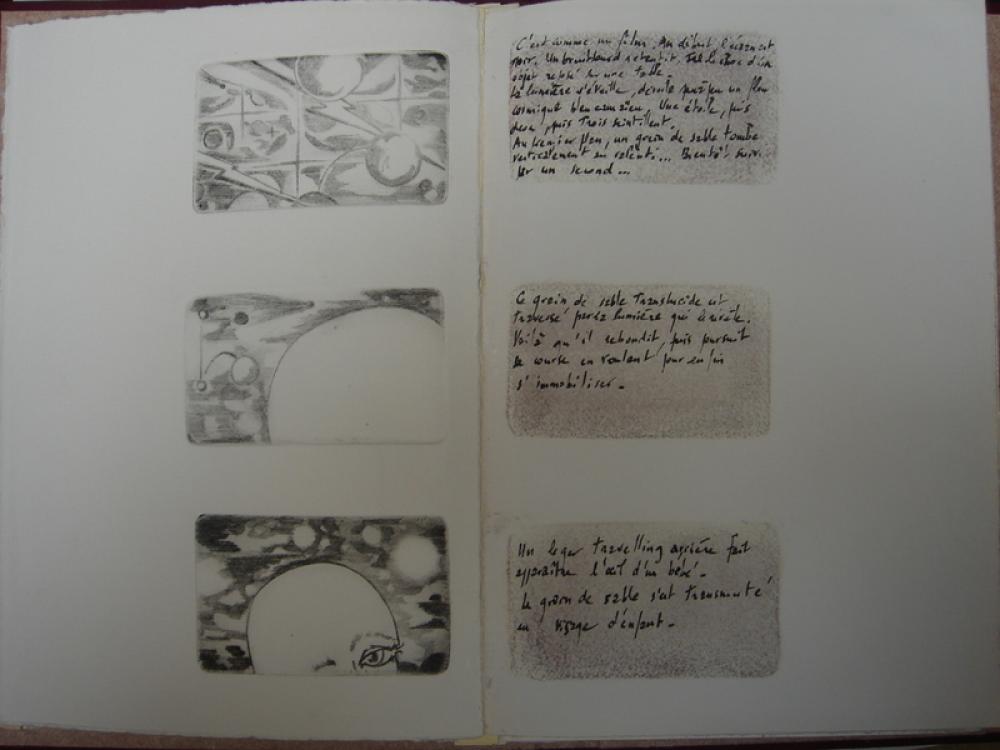 C'est comme un film. Au début l'écran est
noir. Un bruit sourd retentit. Tel le choc d'un
objet sur une table.
La lumière s'éveille, dévoile peu à peu un flou
cosmique Une étoile, puis
deux, puis Trois scintillent.
Au premier plan, un grain de sable tombe
verticalement en ralenti... Bientôt suivi
par un second...
Ce grain de sable Translucide est
Traversé par la lumière qui
Voilà qu'il rebondit, puis poursuit
sa course en roulant pour enfin
s'immobiliser.
Un léger Travelling arrière fait
apparaître l'œil d'un bébé.
Le grain de sable s'est Transmuté
en visage d'enfant.